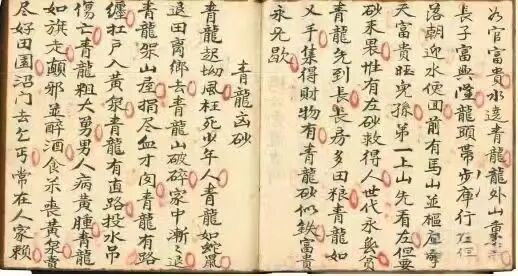 為官富貴水遶青龍龍外山重
長子富興隆龍頭帶步庫行左但
落朝迎水便田前有馬山並樞屋
天富貴旺兒孫第一上山先看左但要
砂來畏性有左砂救得人世代永無貧
青龍先到長長房多田粮青龍如
义手集得財物有青龍砂似缺富貴
永无歇
青龍凶砂
青龍起坳風枉死少年人青龍如蛇鼠
退田离鄉去青龍山破碎家中漸漸退
青龍架山崖損尽血才內青龍有路
纏扛尸入黃泉青龍有直路投水吊
傷亡青龍粗大勇男人病黃腫青龍
如旗走顛邪並醉酒食杀丧黃泉賣
尽好田園沿門去乞丐常在人家賴